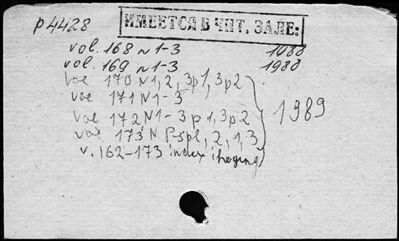 р 4428
ИМЕЕТСЯ В ЧИТ. ЗАЛЕ:
vol. 168 N 1-3 1988
vol. 169 N 1-3 1988
vol 170 N 1, 2, 3p1, 3p2
vol 171 N 1-3
vol 172 N 1-3p1, 3p2
vol 173 N 1, 2, 3
1989
v. 162-173 index